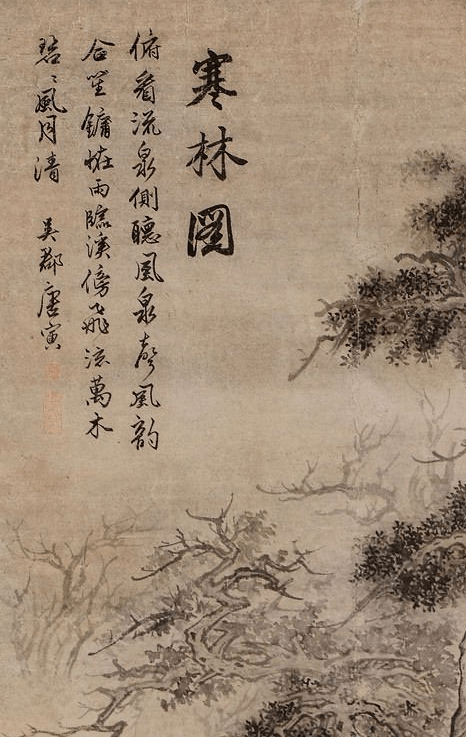 寒林图
俯看流泉側聽風泉聲風韵
合笙鏞在雨臨溪傍飛流萬木
碧〻風月清 吳郡唐寅